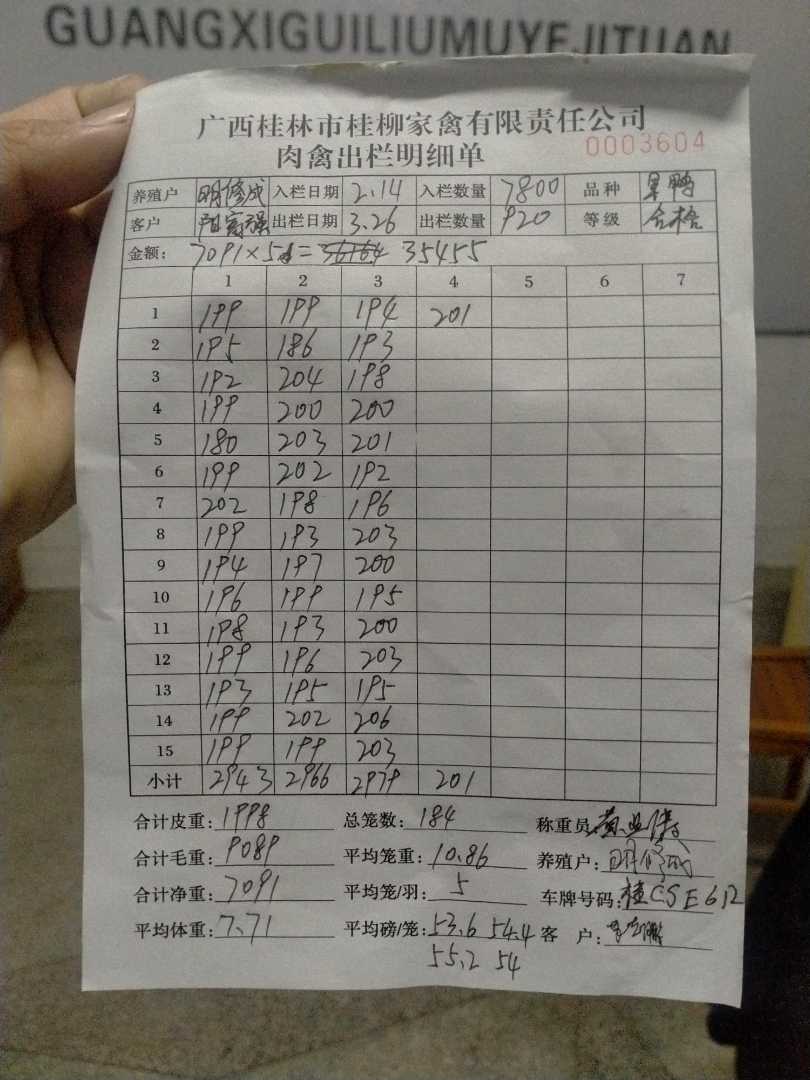 GUANGXIGUILIUMUYEJITUAN
广西桂林市桂柳家禽有限责任公司
肉禽出栏明细单 0003604
养殖户 明修成 入栏日期 2.14 入栏数量 7800 品种 果鸭
客户 阳富强 出栏日期 3.26 出栏数量 920 等级 合格
金额: 7091×5 = 36164 35455
1 2 3 4 5 6 7
1 199 199 194 201
2 195 186 193
3 192 204 198
4 199 200 200
5 180 203 201
6 199 202 192
7 202 198 196
8 199 193 203
9 194 197 200
10 196 199 195
11 198 193 200
12 199 196 203
13 193 195 195
14 199 202 206
15 199 199 203
小计 2943 2966 2979 201
合计皮重: 1998 总笼数: 184 称重员:
合计毛重: 9089 平均笼重: 10.86 养殖户: 明修成
合计净重: 7091 平均笼/羽: 5 车牌号码: 桂CSE612
平均体重: 7.71 平均磅/笼: 53.6 54.4 客 户:
55.2 54